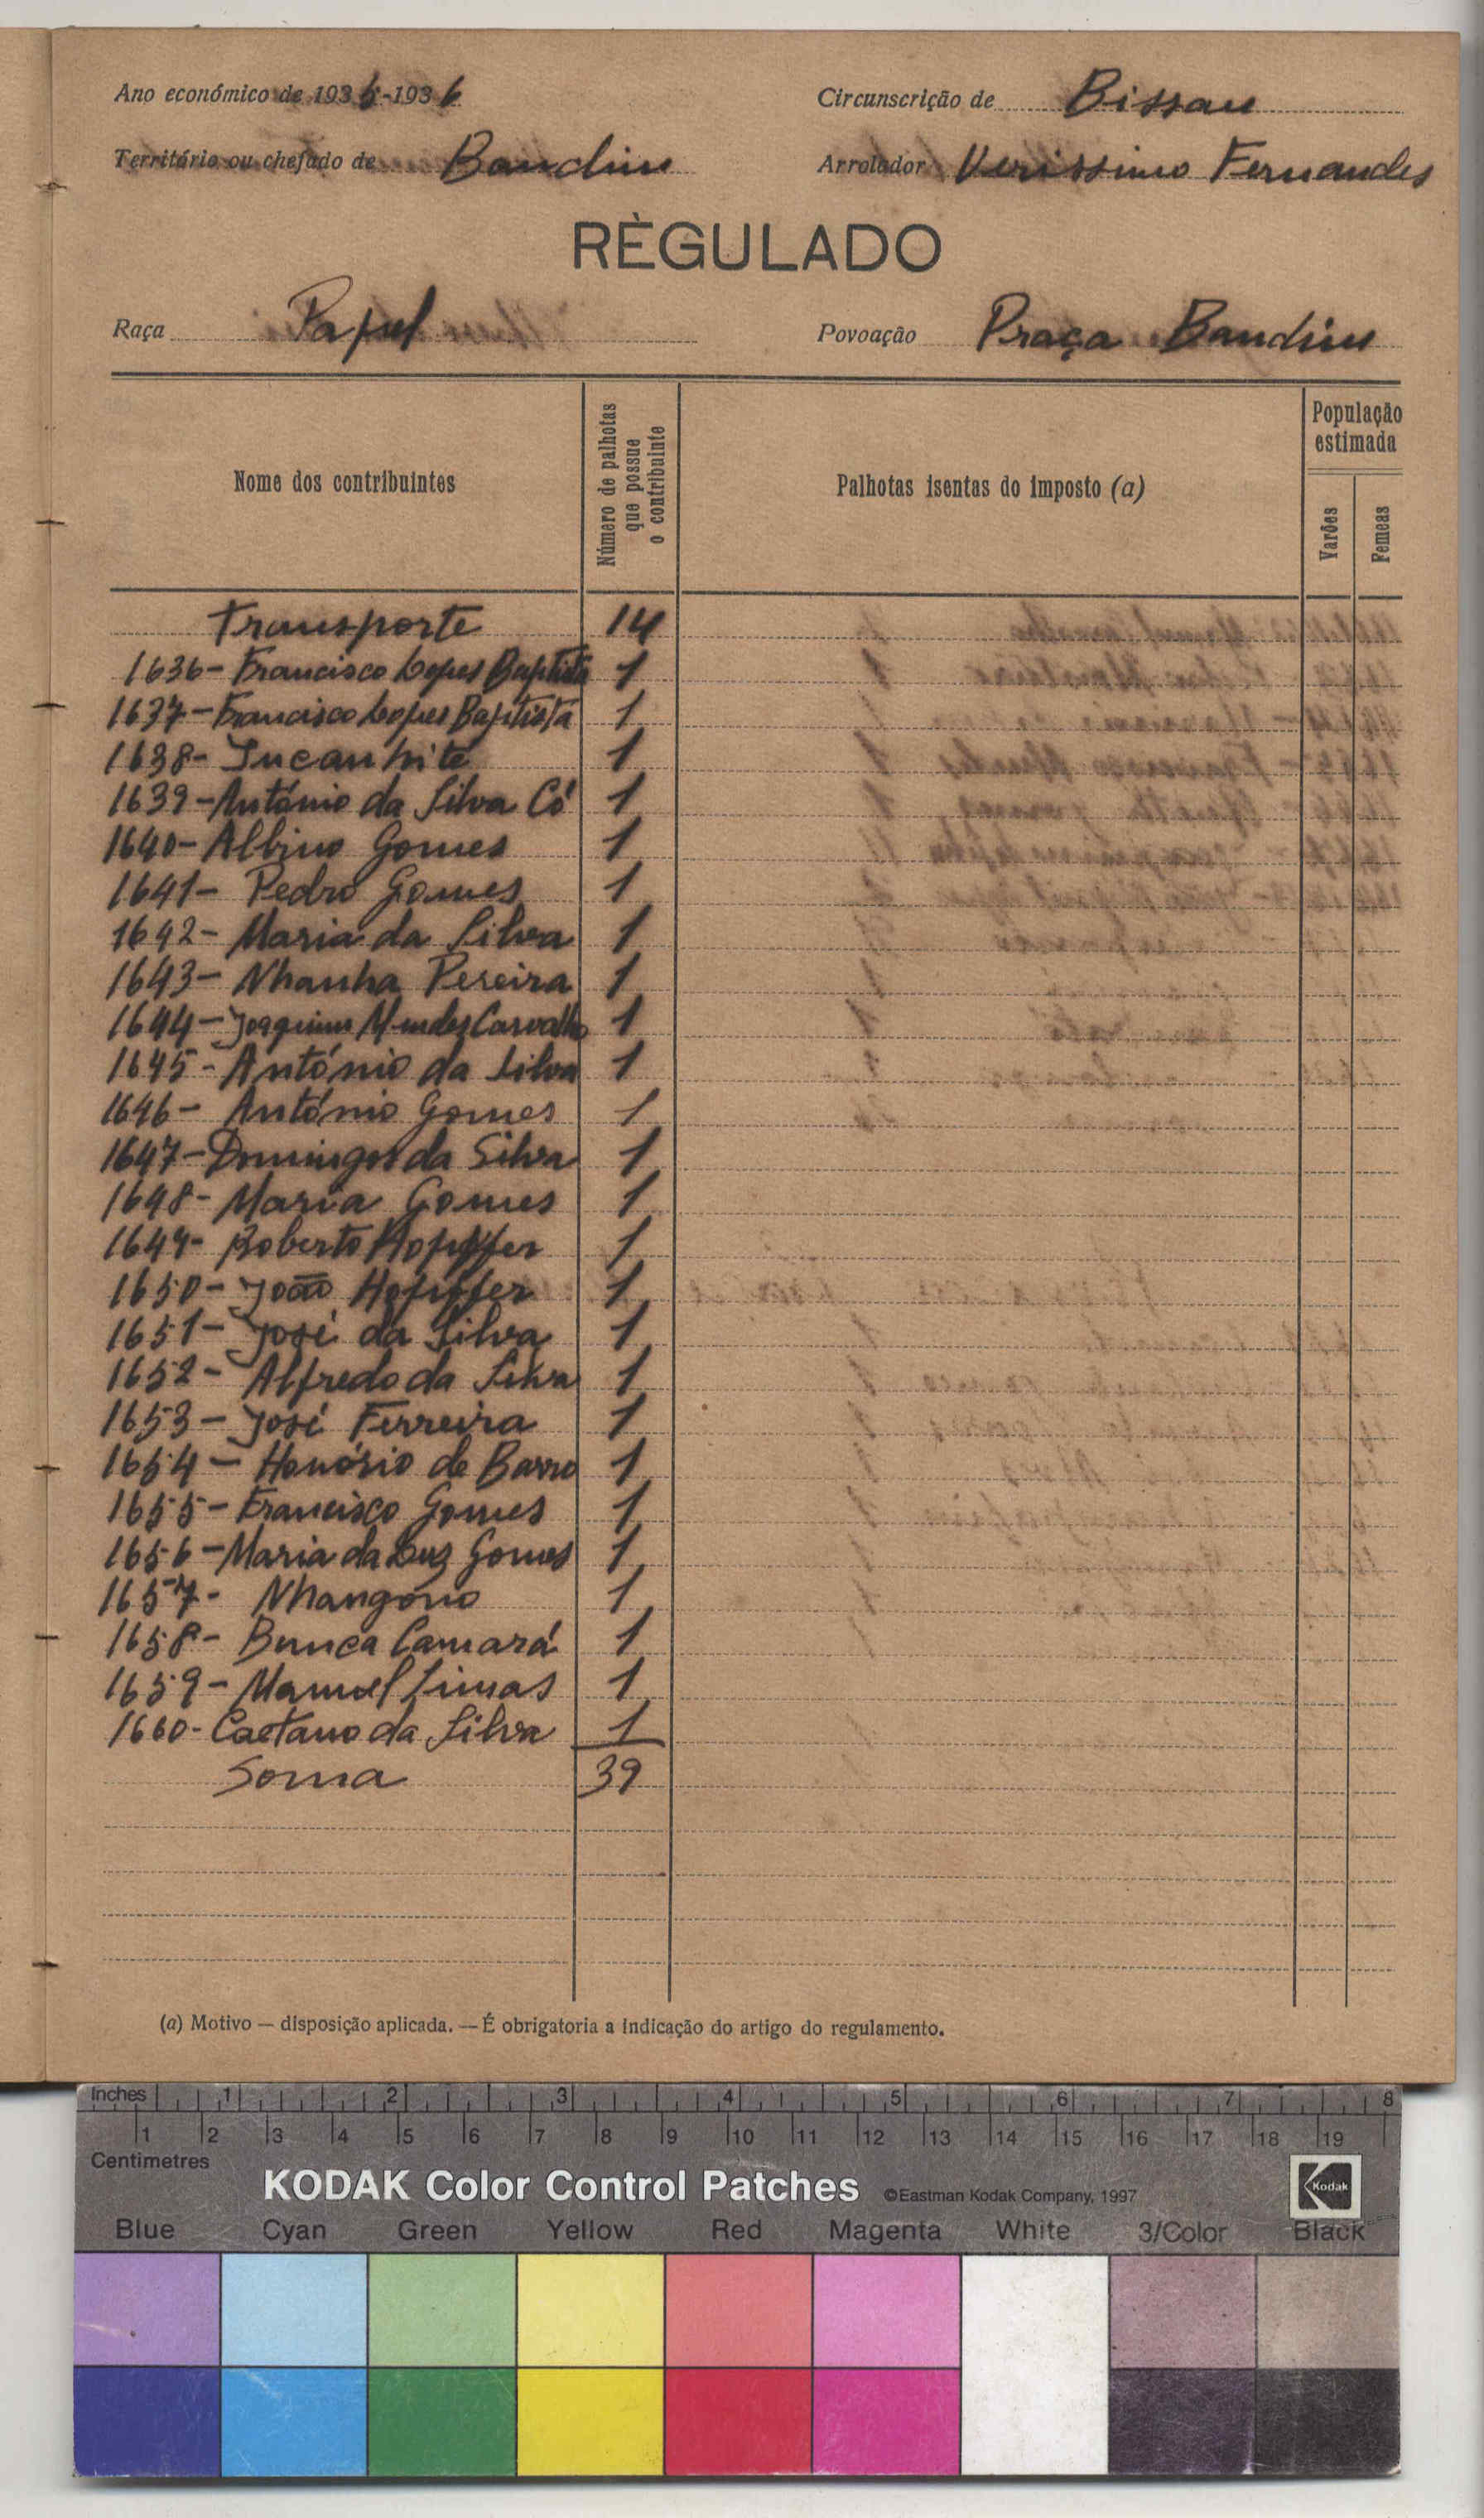 Ano económico de 1935-1936
Circunscrição de Bissau
Território ou chefado de Bandim
Arrolador Verissimo Fernandes
RÈGULADO
Raça Papel
Povoação Praça Bandim
Nome dos contribuintes
Número de palhotas que possue o contribuinte
Palhotas isentas do imposto (a)
População estimada
Varões
Femeas
Transporte 14
1636- Francisco Lopes Baptista 1
1637- Francisco Lopes Baptista 1
1638- 1
1639- António da Silva Có 1
1640- Albino Gomes 1
1641- Pedro Gomes 1
1642- Maria da Silva 1
1643- Nhanha Pereira 1
1644- Joaquim Mendes Carvalho 1
1645- António da Silva 1
1646- António Gomes 1
1647- Domingos da Silva 1
1648- Maria Gomes 1
1649- Roberto Hopffer 1
1650- João Hopffer 1
1651- José da Silva 1
1652- Alfredo da Silva 1
1653- José Ferreira 1
1654- Honório de Barro 1
1655- Francisco Gomes 1
1656- Maria da Luz Gomes 1
1657- Nhangono 1
1658- Bunca Camará 1
1659- Manuel Limas 1
1660- Caetano da Silva 1
Soma 39
(a) Motivo — disposição aplicada. — É obrigatoria a indicação do artigo do regulamento.
Inches 1 2 3 4 5 6 7 8
1 2 3 4 5 6 7 8 9 10 11 12 13 14 15 16 17 18 19
Centimetres
KODAK Color Control Patches ©Eastman Kodak Company, 1997 Kodak
Blue Cyan Green Yellow Red Magenta White 3/Color Black